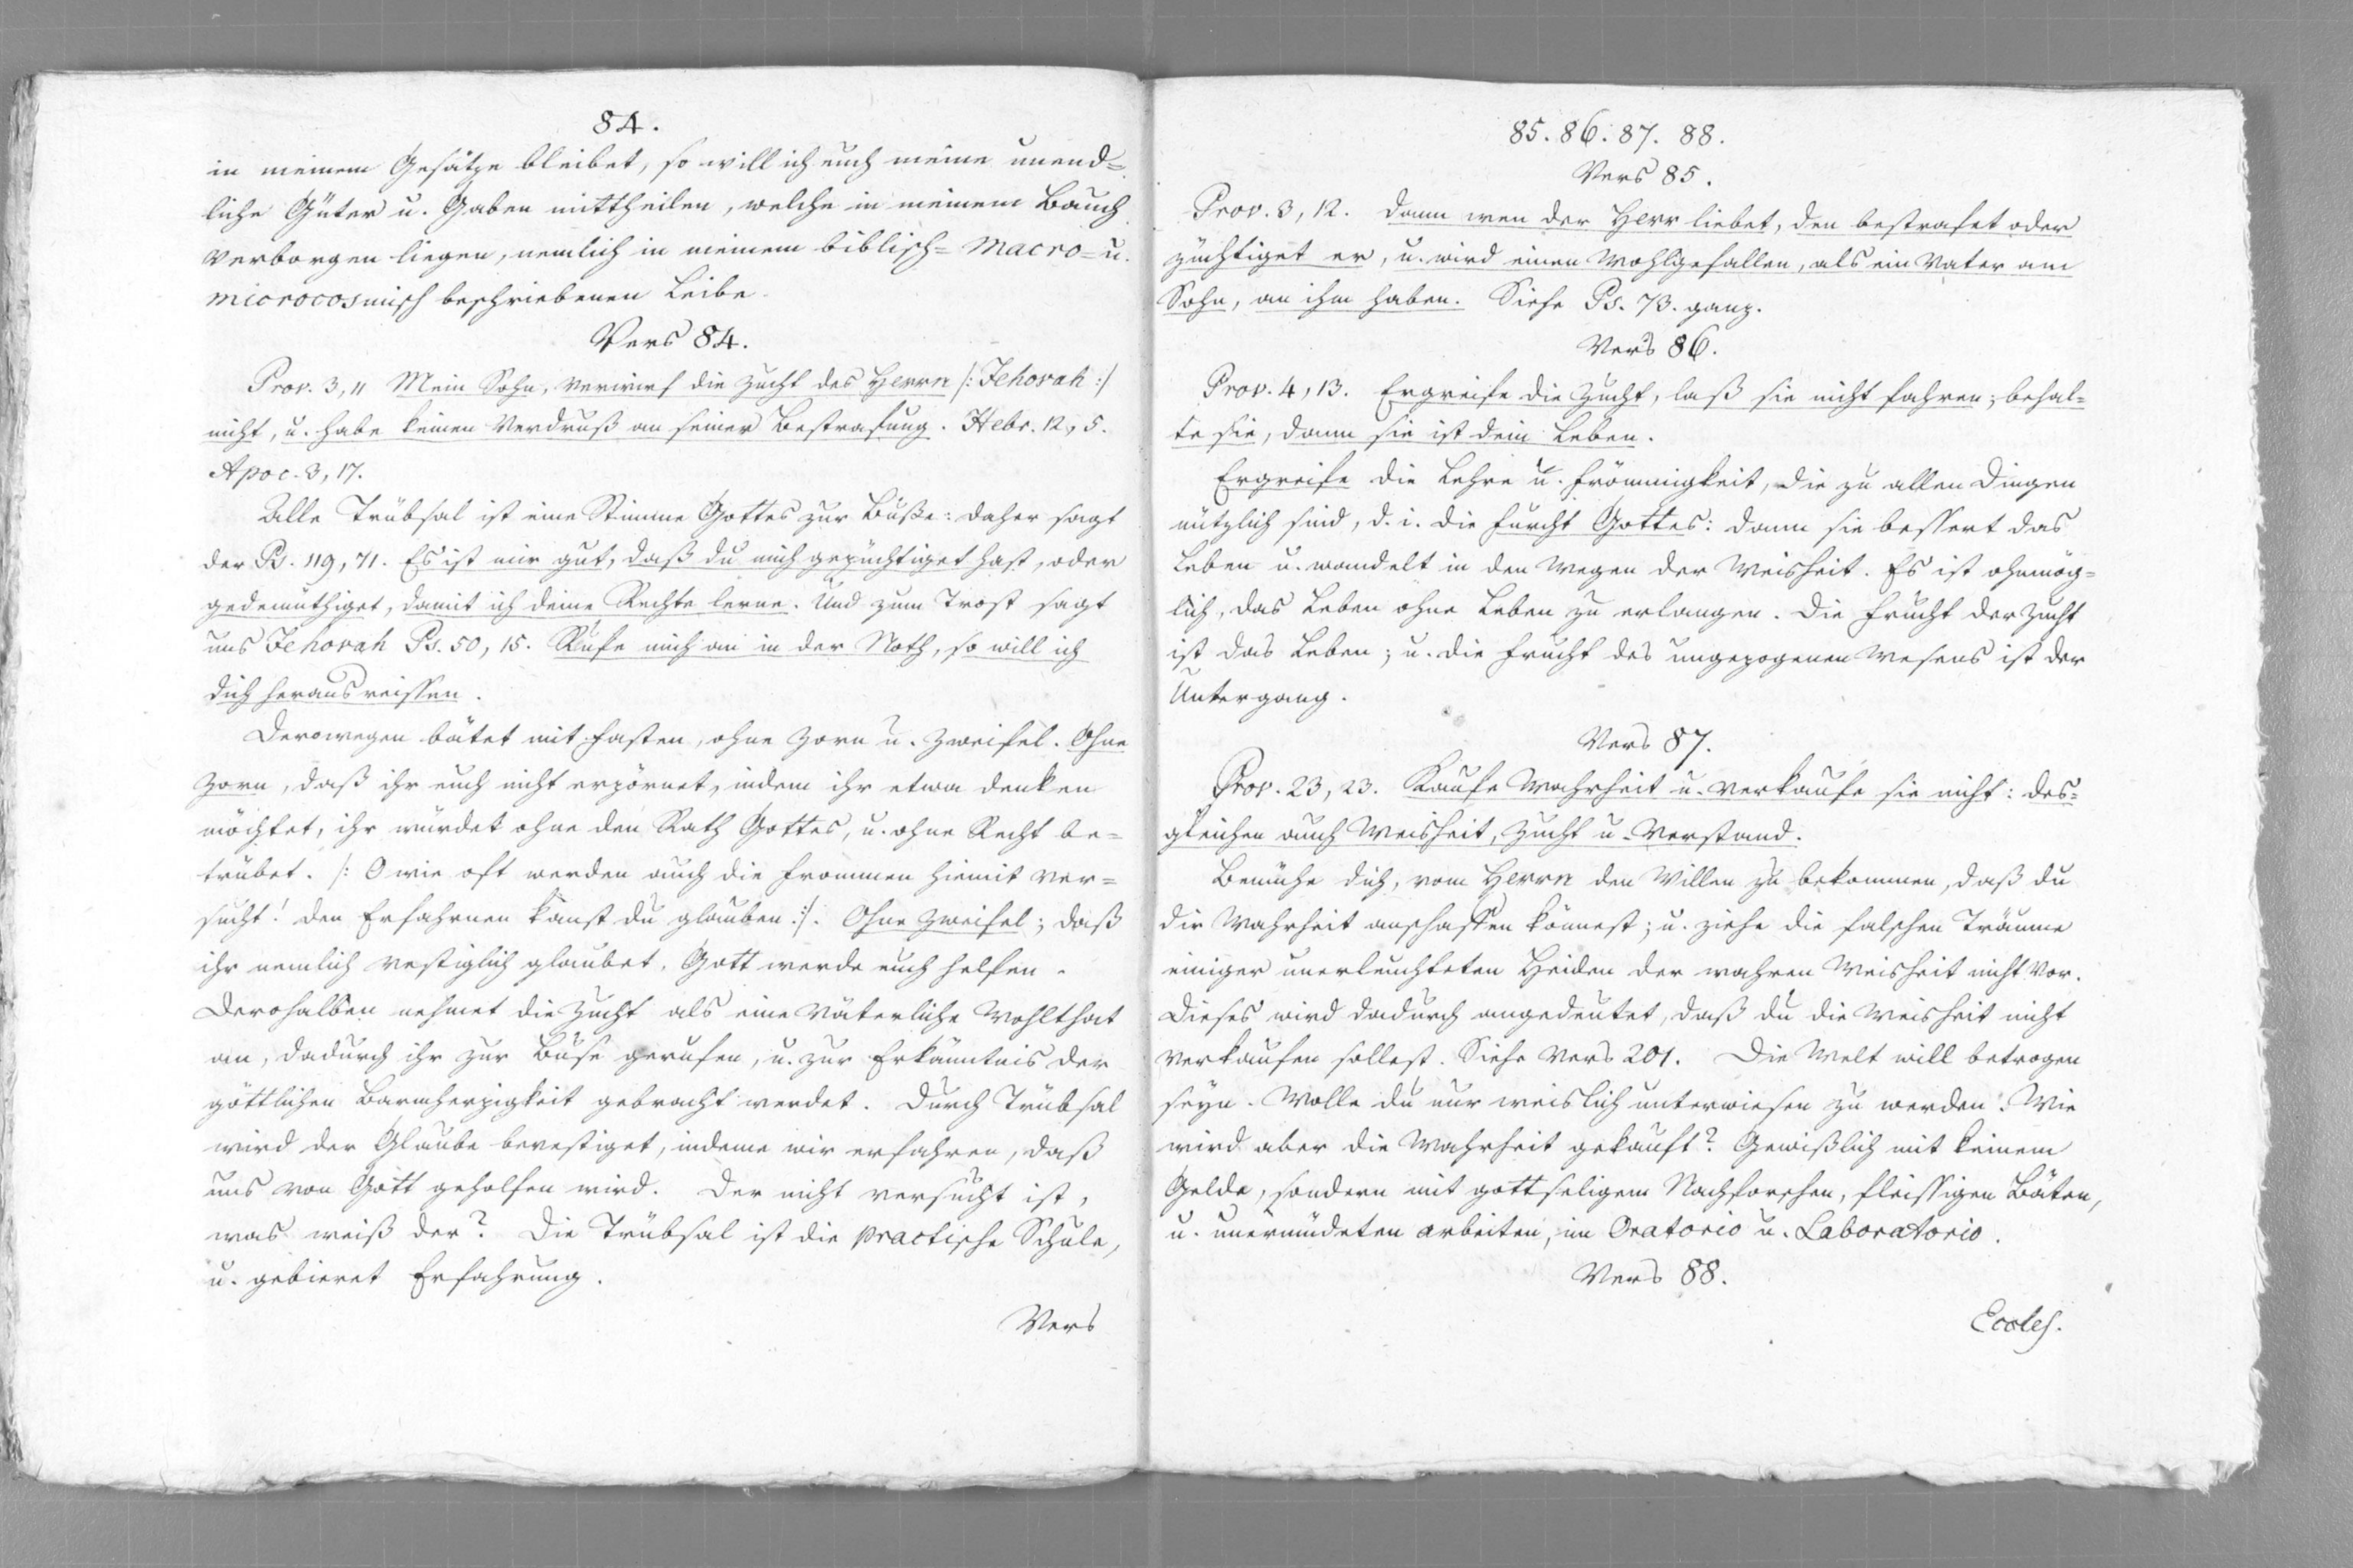 84.
in meinem Gesätze bleibet, so will ich euch meine unend=
liche Güter u. Gaben mittheilen, welche in meinem Bauch
verborgen liegen, nemlich in meinem biblisch= Macro= u.
microcosmisch beschriebenen Leibe.
Vers 84.
Prov. 3, 11 Mein Sohn, verwirf die Zucht des Herrn /: Jehovah :/
nicht, u. habe keinen Verdruß an seiner Bestrafung. Hebr. 12, 5.
Apoc. 3, 17.
Alle Trübsal ist eine Stimme Gottes zur Buße: daher sagt
der Ps. 119, 71. Es ist mir gut, daß du mich gezüchtiget hast, oder
gedemüthiget, damit ich deine Rechte lerne. Und zum Trost sagt
uns Jehovah Ps. 50, 15. Rufe mich an in der Noth, so will ich
dich heraus reissen.
Derowegen bätet mit Fasten, ohne Zorn u. Zweifel. Ohne
Zorn, daß ihr euch nicht erzörnet, indem ihr etwa denken
möchtet, ihr würdet ohne den Rath Gottes, u. ohne Recht be=
trübet. /: O wie oft werden auch die Frommen hiemit ver=
sucht! den Erfahrnen kanst du glauben :/. Ohne Zweifel; daß
ihr nemlich vestiglich glaubet, Gott werde euch helfen.
Derohalben nehmet die Zucht als eine väterliche Wohlthat
an, dadurch ihr zur Buse gerufen, u. zur Erkänntnis der
göttlichen Barmherzigkeit gebracht werdet. Durch Trübsal
wird der Glaube bevestiget, indeme wir erfahren, daß
uns von Gott geholfen wird. Der nicht versucht ist,
was weiß der? Die Trübsal ist die practische Schule,
u. gebieret Erfahrung.
Vers
85. 86. 87. 88.
Vers 85.
Prov. 3, 12. Dann wen der Herr liebet, den bestrafet oder
züchtiget er, u. wird einen Wohlgefallen, als ein Vater am
Sohn, an ihm haben. Siehe Ps. 73. ganz.
Vers 86.
Prov. 4, 13. Ergreife die Zucht, laß sie nicht fahren; behal=
te sie, dann sie ist dein Leben.
Ergreife die Lehre u. Frömmigkeit, die zu allen Dingen
nützlich sind, d. i. die Furcht Gottes: dann sie bessert das
Leben u. wandelt in den Wegen der Weisheit. Es ist ohnmög=
lich, das Leben ohne Leben zu erlangen. Die Frucht der Zucht
ist das Leben; u. die Frucht des ungezogenen Wesens ist der
Untergang.
Vers 87.
Prov. 23, 23. Kaufe Wahrheit u. verkaufe sie nicht: des=
gleichen auch Weisheit, Zucht u. Verstand.
Bemühe dich, vom Herrn den Willen zu bekommen, daß du
die Wahrheit anschaffen könnest; u. ziehe die falschen Träume
einiger unerleuchteten Heiden der wahren Weisheit nicht vor.
Dieses wird dadurch angedeutet, daß du die Weisheit nicht
verkaufen sollest. Siehe Vers 201. Die Welt will betrogen
seyn. Wolle du nur weislich unterwiesen zu werden. Wie
wird aber die Wahrheit gekauft? Gewißlich mit keinem
Gelde, sondern mit gottseligem Nachforschen, fleissigen Bäten,
u. unermüdeten arbeiten, im Oratorio u. Laboratorio.
Vers 88.
Eccles.